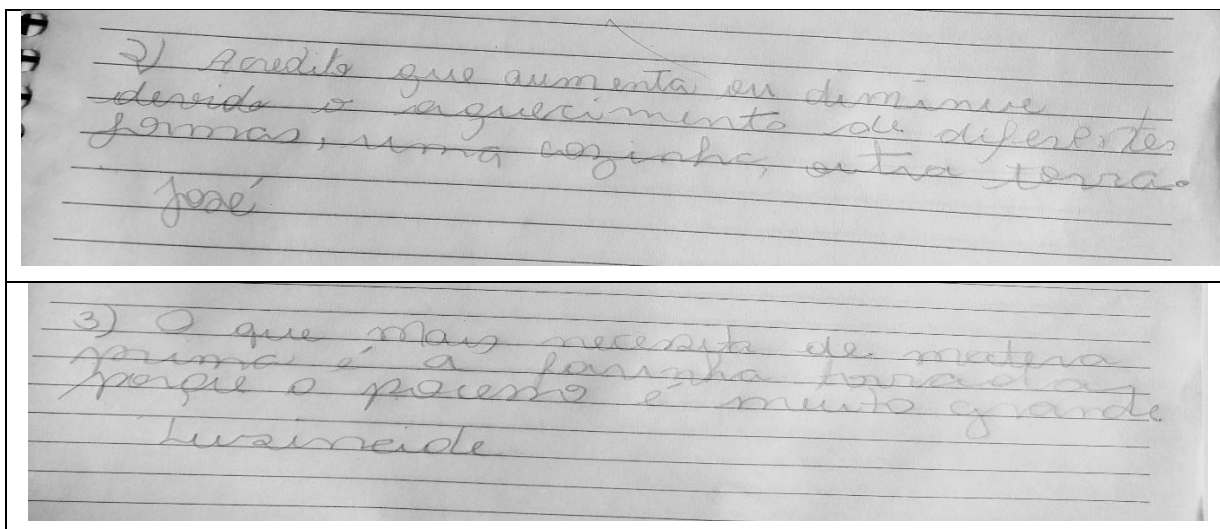 2) Acredito que aumenta ou diminue
devido o aquecimento de diferentes
formas, uma cozinha, outra torra.
José
3) O que mais necessita de matera
prima é a farinha torrada
porque o pocesso é muito grande
Luzineide